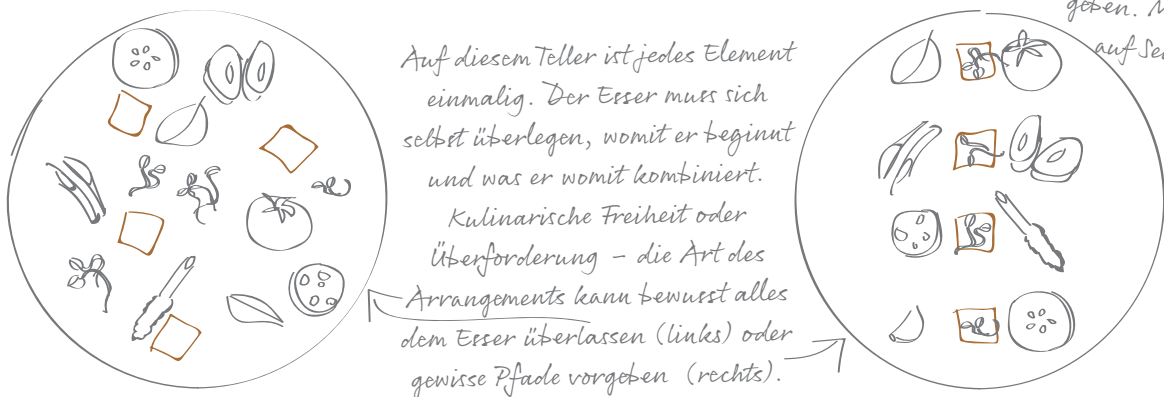 Auf diesem Teller ist jedes Element
einmalig. Der Esser muss sich
selbst überlegen, womit er beginnt
und was er womit kombiniert.
Kulinarische Freiheit oder
Überforderung – die Art des
Arrangements kann bewusst alles
dem Esser überlassen (links) oder
gewisse Pfade vorgeben (rechts).
geben.
auf